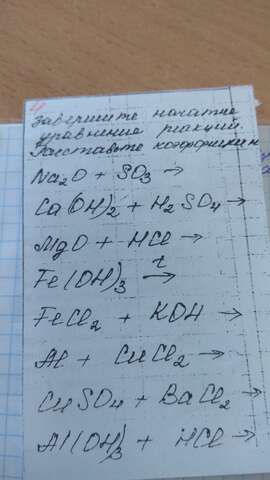 4
Завершите начатые
уравнение реакций.
Расставьте коэффициен
Na₂O + SO₃ →
Ca(OH)₂ + H₂SO₄ →
MgO + HCl →
Fe(OH)₃ t→
FeCl₂ + KOH →
Al + CuCl₂ →
CuSO₄ + BaCl₂ →
Al(OH)₃ + HCl →